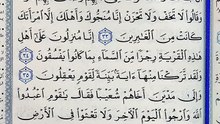 وَقَالُوا۟ لَا تَخَفْ وَلَا تَحْزَنْ إِنَّا مُنَجُّوكَ وَأَهْلَكَ إِلَّا ٱمْرَأَتَكَ
كَانَتْ مِنَ ٱلْغَٰبِرِينَ ٣٣ إِنَّا مُنزِلُونَ عَلَىٰٓ أَهْلِ
هَٰذِهِ ٱلْقَرْيَةِ رِجْزًا مِّنَ ٱلسَّمَآءِ بِمَا كَانُوا۟ يَفْسُقُونَ ٣٤
وَلَقَد تَّرَكْنَا مِنْهَآ ءَايَةًۢ بَيِّنَةً لِّقَوْمٍ يَعْقِلُونَ ٣٥
وَإِلَىٰ مَدْيَنَ أَخَاهُمْ شُعَيْبًا فَقَالَ يَٰقَوْمِ ٱعْبُدُوا۟
ٱللَّهَ وَٱرْجُوا۟ ٱلْيَوْمَ ٱلْءَاخِرَ وَلَا تَعْثَوْا۟ فِى ٱلْأَرْضِ